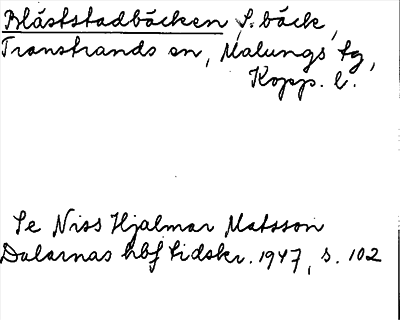 Blåststadbäcken, S. bäck,
Transtrands sn, Malungs tg,
Kopp. l.
Se Niss Hjalmar Matsson
Dalarnas hbf tidskr. 1947, s. 102